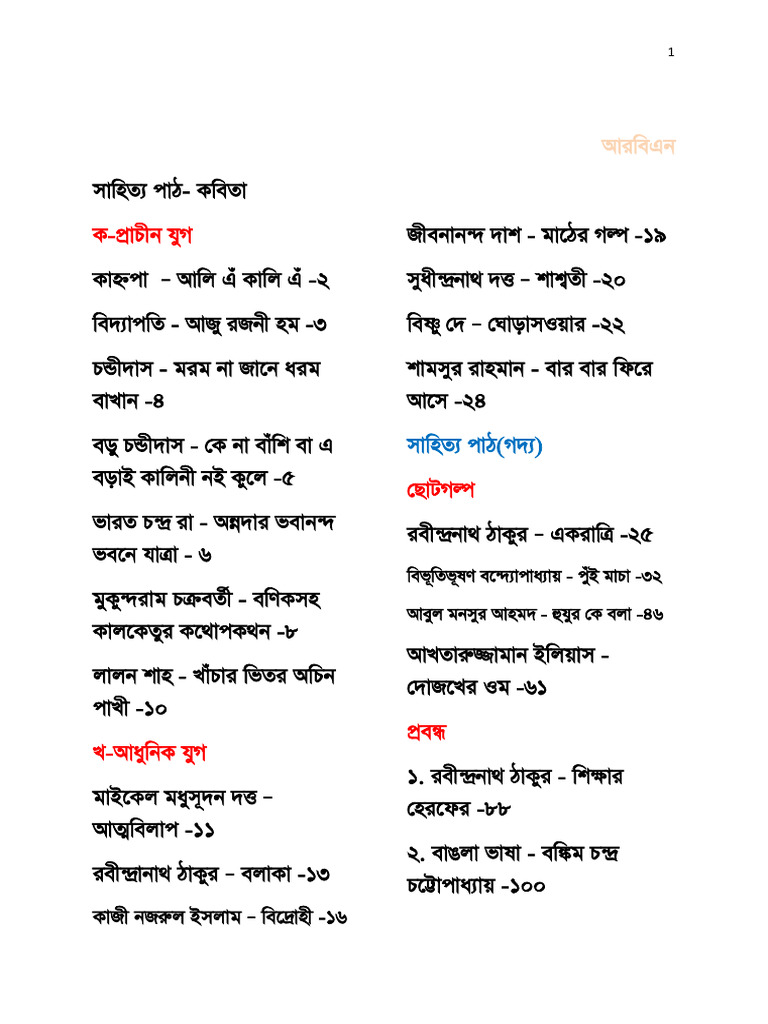 1
আরবিএন
সাহিত্য পাঠ- কবিতা
ক-প্রাচীন যুগ
কাহ্নপা – আলি এঁ কালি এঁ -২
বিদ্যাপতি - আজু রজনী হম -৩
চন্ডীদাস - মরম না জানে ধরম
বাখান -৪
বড়ু চন্ডীদাস - কে না বাঁশি বা এ
বড়াই কালিনী নই কুলে -৫
ভারত চন্দ্র রা - অন্নদার ভবানন্দ
ভবনে যাত্রা - ৬
মুকুন্দরাম চক্রবর্তী - বণিকসহ
কালকেতুর কথোপকথন -৮
লালন শাহ - খাঁচার ভিতর অচিন
পাখী -১০
খ-আধুনিক যুগ
মাইকেল মধুসূদন দত্ত –
আত্মবিলাপ -১১
রবীন্দ্রানাথ ঠাকুর – বলাকা -১৩
কাজী নজরুল ইসলাম – বিদ্রোহী -১৬
জীবনানন্দ দাশ - মাঠের গল্প -১৯
সুধীন্দ্রনাথ দত্ত – শাশ্বতী -২০
বিষ্ণু দে – ঘোড়াসওয়ার -২২
শামসুর রাহমান - বার বার ফিরে
আসে -২৪
সাহিত্য পাঠ(গদ্য)
ছোটগল্প
রবীন্দ্রনাথ ঠাকুর – একরাত্রি -২৫
বিভূতিভূষণ বন্দ্যোপাধ্যায় - পুঁই মাচা -৩২
আবুল মনসুর আহমদ - হুযুর কে বলা -৪৬
আখতারুজ্জামান ইলিয়াস -
দোজখের ওম -৬১
প্রবন্ধ
১. রবীন্দ্রনাথ ঠাকুর - শিক্ষার
হেরফের -৮৮
২. বাঙলা ভাষা - বঙ্কিম চন্দ্র
চট্টোপাধ্যায় -১০০